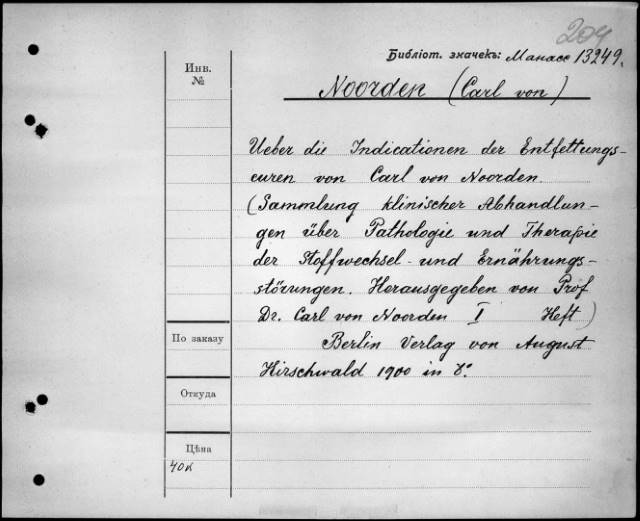 204
Библіот. значекъ: Манасс 13249.
Инв.
№
Noorden (Carl von)
Ueber die Indicationen der Entfettungs-
curen von Carl von Noorden.
(Sammlung klinischer Abhandlun-
gen über Pathologie und Therapie
der Stoffwechsel- und Ernährungs-
störungen. Herausgegeben von Prof
Dr. Carl von Noorden I Heft)
Berlin Verlag von August
Hirschwald 1900 in 8°
По заказу
Откуда
Цѣна
40к